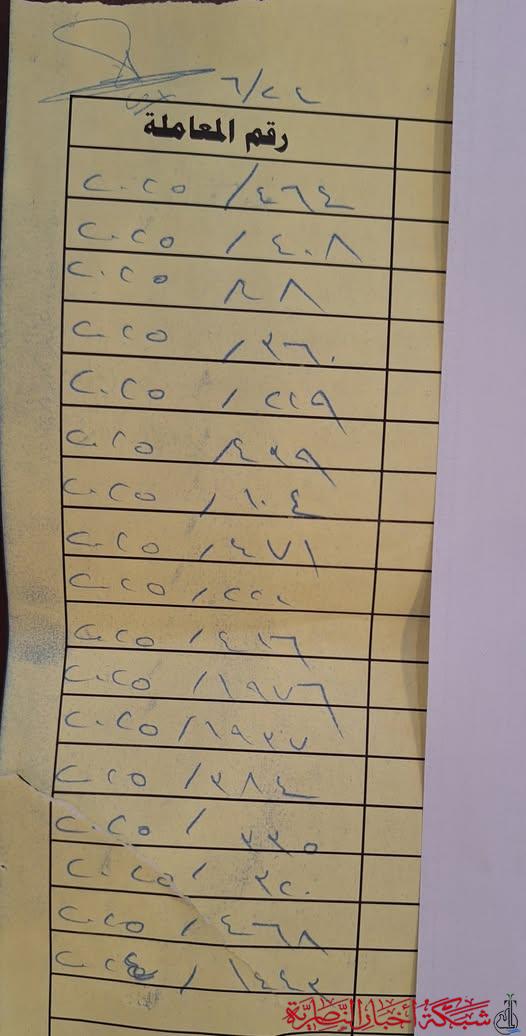 ٦/٢٢
رقم المعاملة
٤٦٤/ ٢٠٢٥
٤٠٨/ ٢٠٢٥
٢٠٢٥
٣٦٠/ ٢٠٢٥
٢٢٩/ ٢٠٢٥
٢٠٢٥
١٠٤/ ٢٠٢٥
٤٧١/ ٢٠٢٥
٢٢٢/ ٢٠٢٥
٤١٦/ ٢٠٢٥
١٩٧٦/ ٢٠٢٥
١٩٣٧/ ٢٠٢٥
٣٨٤/ ٢٠٢٥
٣٣٥/ ٢٠٢٥
٣٢٠/ ٢٠٢٥
٤٦٨/ ٢٠٢٥
١٤٤٣/
شبكة أخبار الناصرية